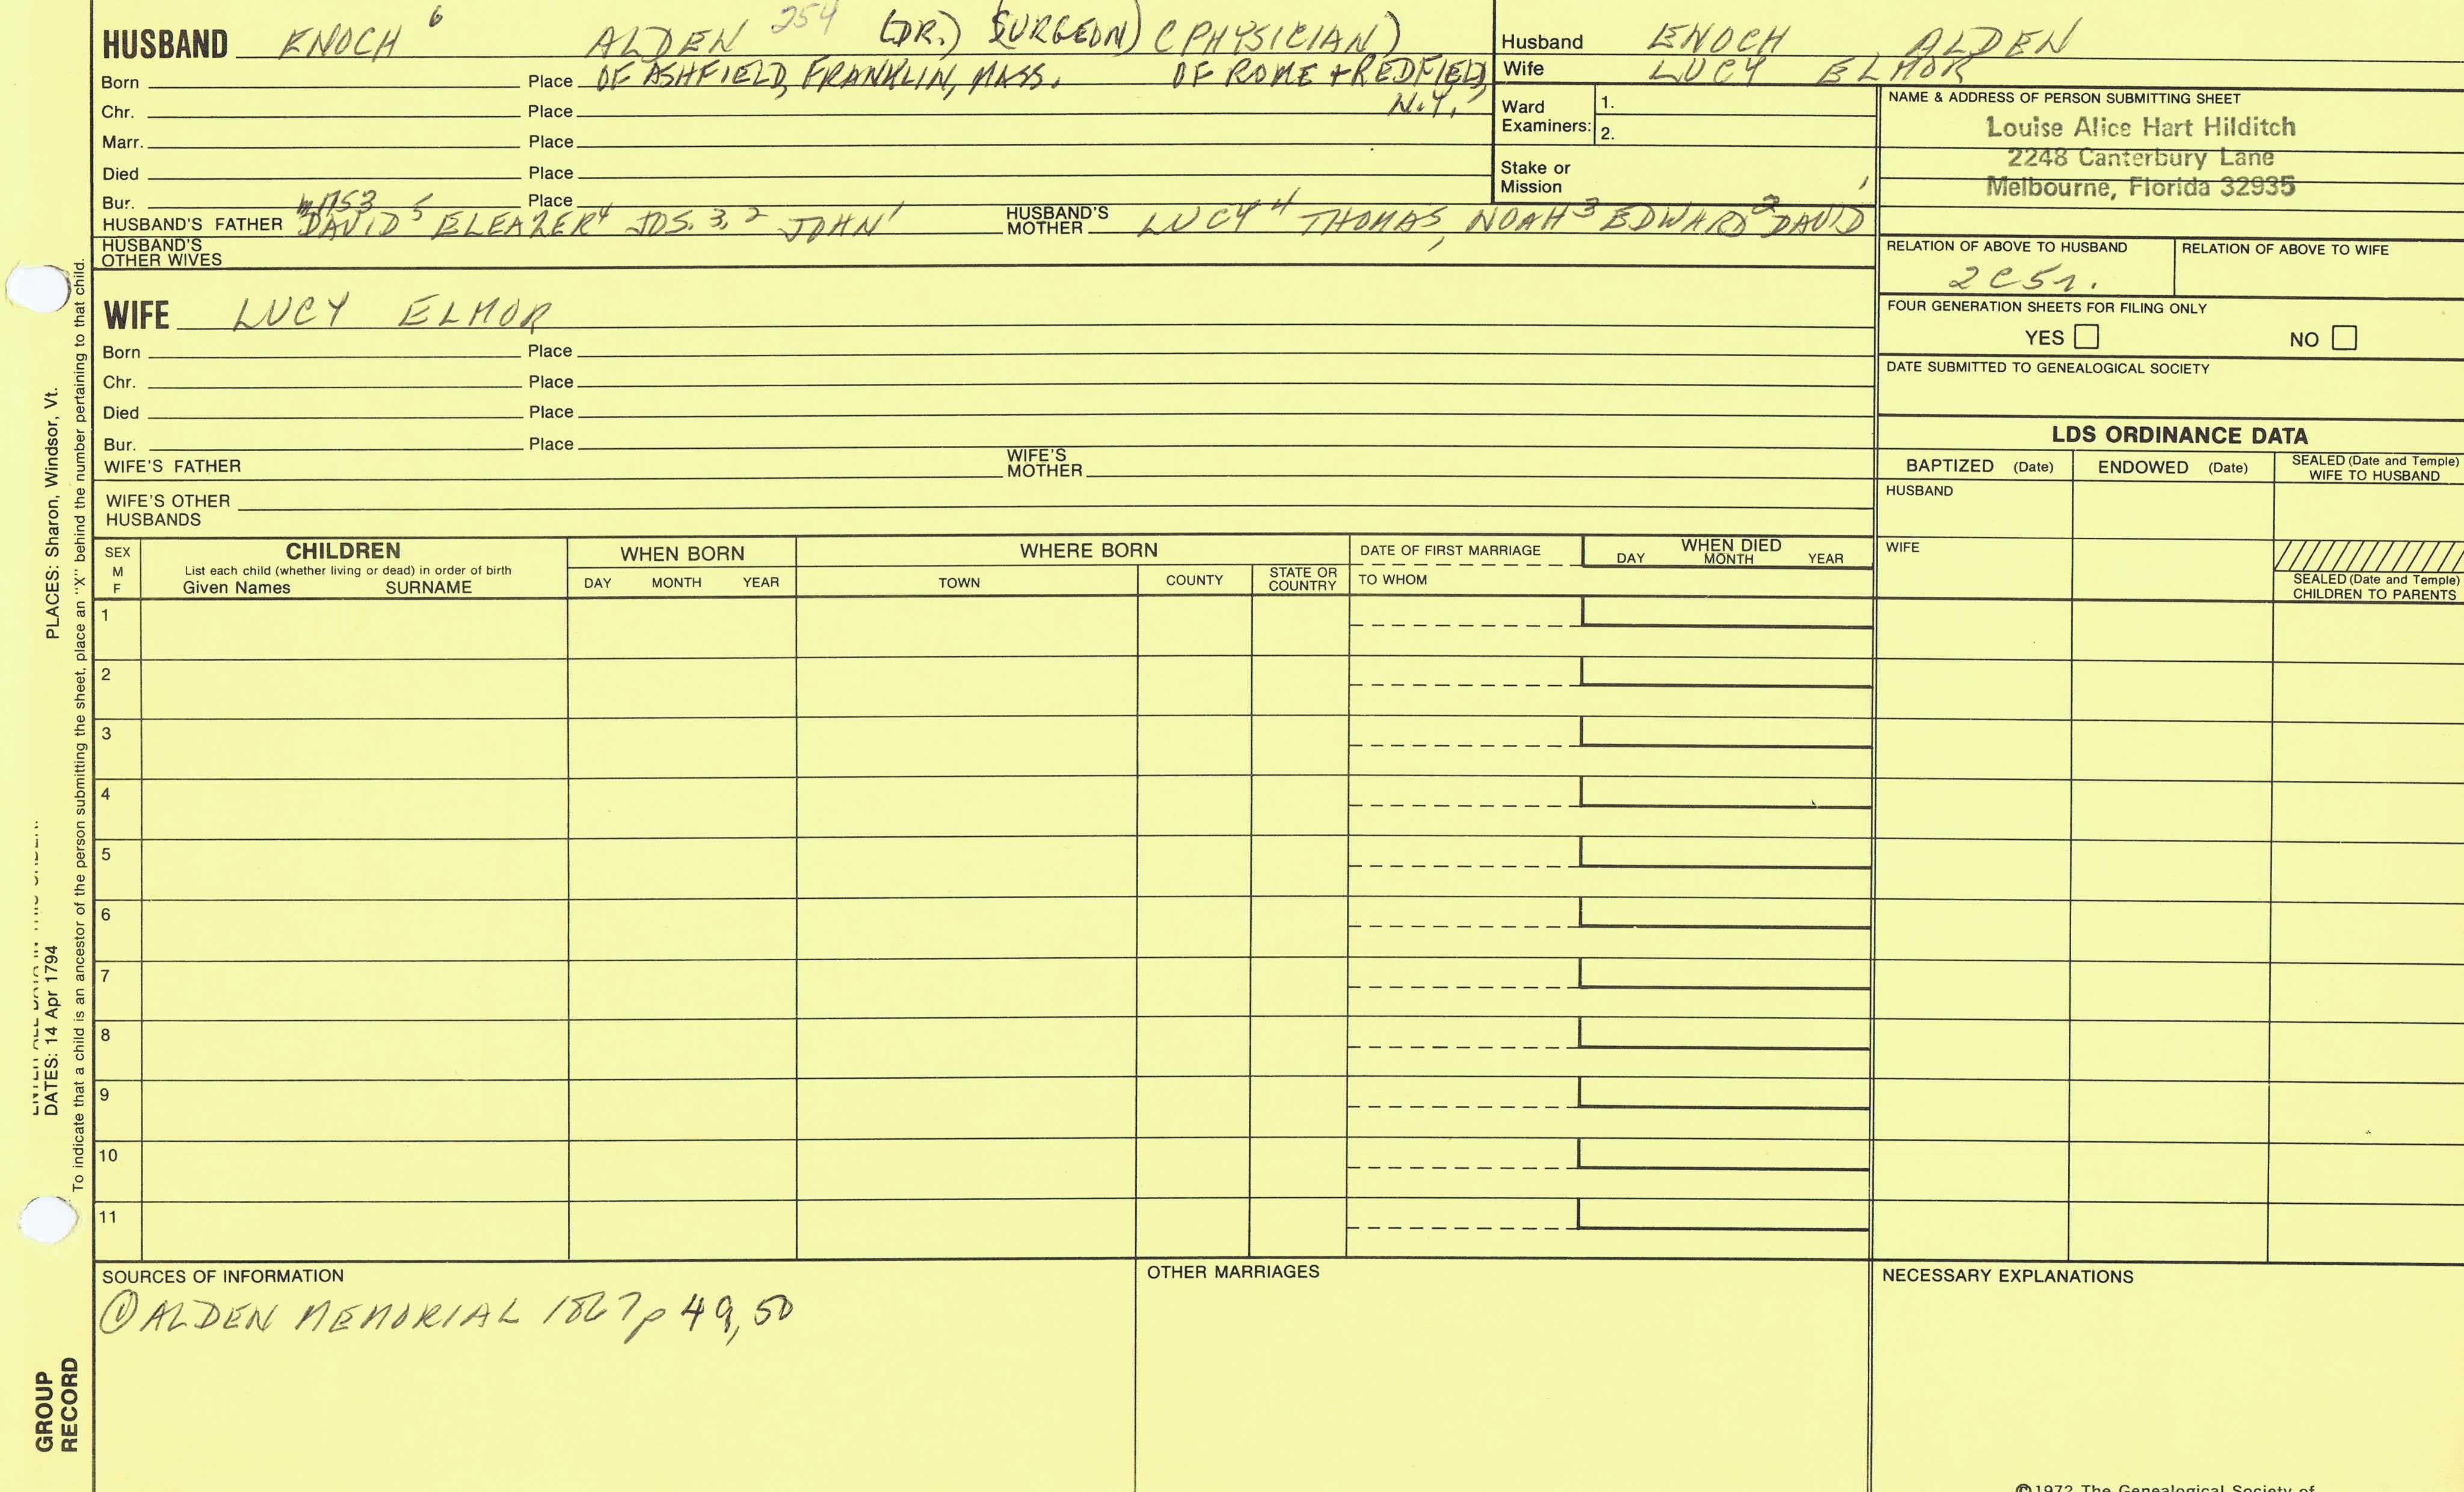 HUSBAND ENOCH 6 ALDEN 254 (DR.) SURGEON) (PHYSICIAN)
Born Place OF ASHFIELD, FRANKLIN, MASS. OF ROME + REDFIELD,
N.Y.
Chr. Place
Marr. Place
Died Place
Bur. Place
1753
HUSBAND'S FATHER DAVID 5 ELEAZER 4 JOS. 3, 2 JOHN 1
HUSBAND'S MOTHER LUCY 4 THOMAS, NOAH 3 EDWARD 2 DAVID 1
HUSBAND'S OTHER WIVES
Husband ENOCH ALDEN
Wife LUCY ELMOR
Ward Examiners: 1.
2.
Stake or Mission
NAME & ADDRESS OF PERSON SUBMITTING SHEET
Louise Alice Hart Hilditch
2248 Canterbury Lane
Melbourne, Florida 32935
RELATION OF ABOVE TO HUSBAND RELATION OF ABOVE TO WIFE
2C5r.
FOUR GENERATION SHEETS FOR FILING ONLY
YES NO
DATE SUBMITTED TO GENEALOGICAL SOCIETY
WIFE LUCY ELMOR
Born Place
Chr. Place
Died Place
Bur. Place
WIFE'S FATHER WIFE'S MOTHER
WIFE'S OTHER HUSBANDS
LDS ORDINANCE DATA
BAPTIZED (Date) ENDOWED (Date) SEALED (Date and Temple) WIFE TO HUSBAND
HUSBAND
WIFE
SEALED (Date and Temple)
CHILDREN TO PARENTS
SEX M F
CHILDREN
List each child (whether living or dead) in order of birth
Given Names SURNAME
WHEN BORN
DAY MONTH YEAR
WHERE BORN
TOWN COUNTY STATE OR COUNTRY
DATE OF FIRST MARRIAGE
TO WHOM
WHEN DIED
DAY MONTH YEAR
1
2
3
4
5
6
7
8
9
10
11
SOURCES OF INFORMATION
① ALDEN MEMORIAL 1867 p 49, 50
OTHER MARRIAGES
NECESSARY EXPLANATIONS
©1972 The Genealogical Society of
PLACES: Sharon, Windsor, Vt.
DATES: 14 Apr 1794
To indicate that a child is an ancestor of the person submitting the sheet, place an "X" behind the number pertaining to that child.
GROUP
RECORD